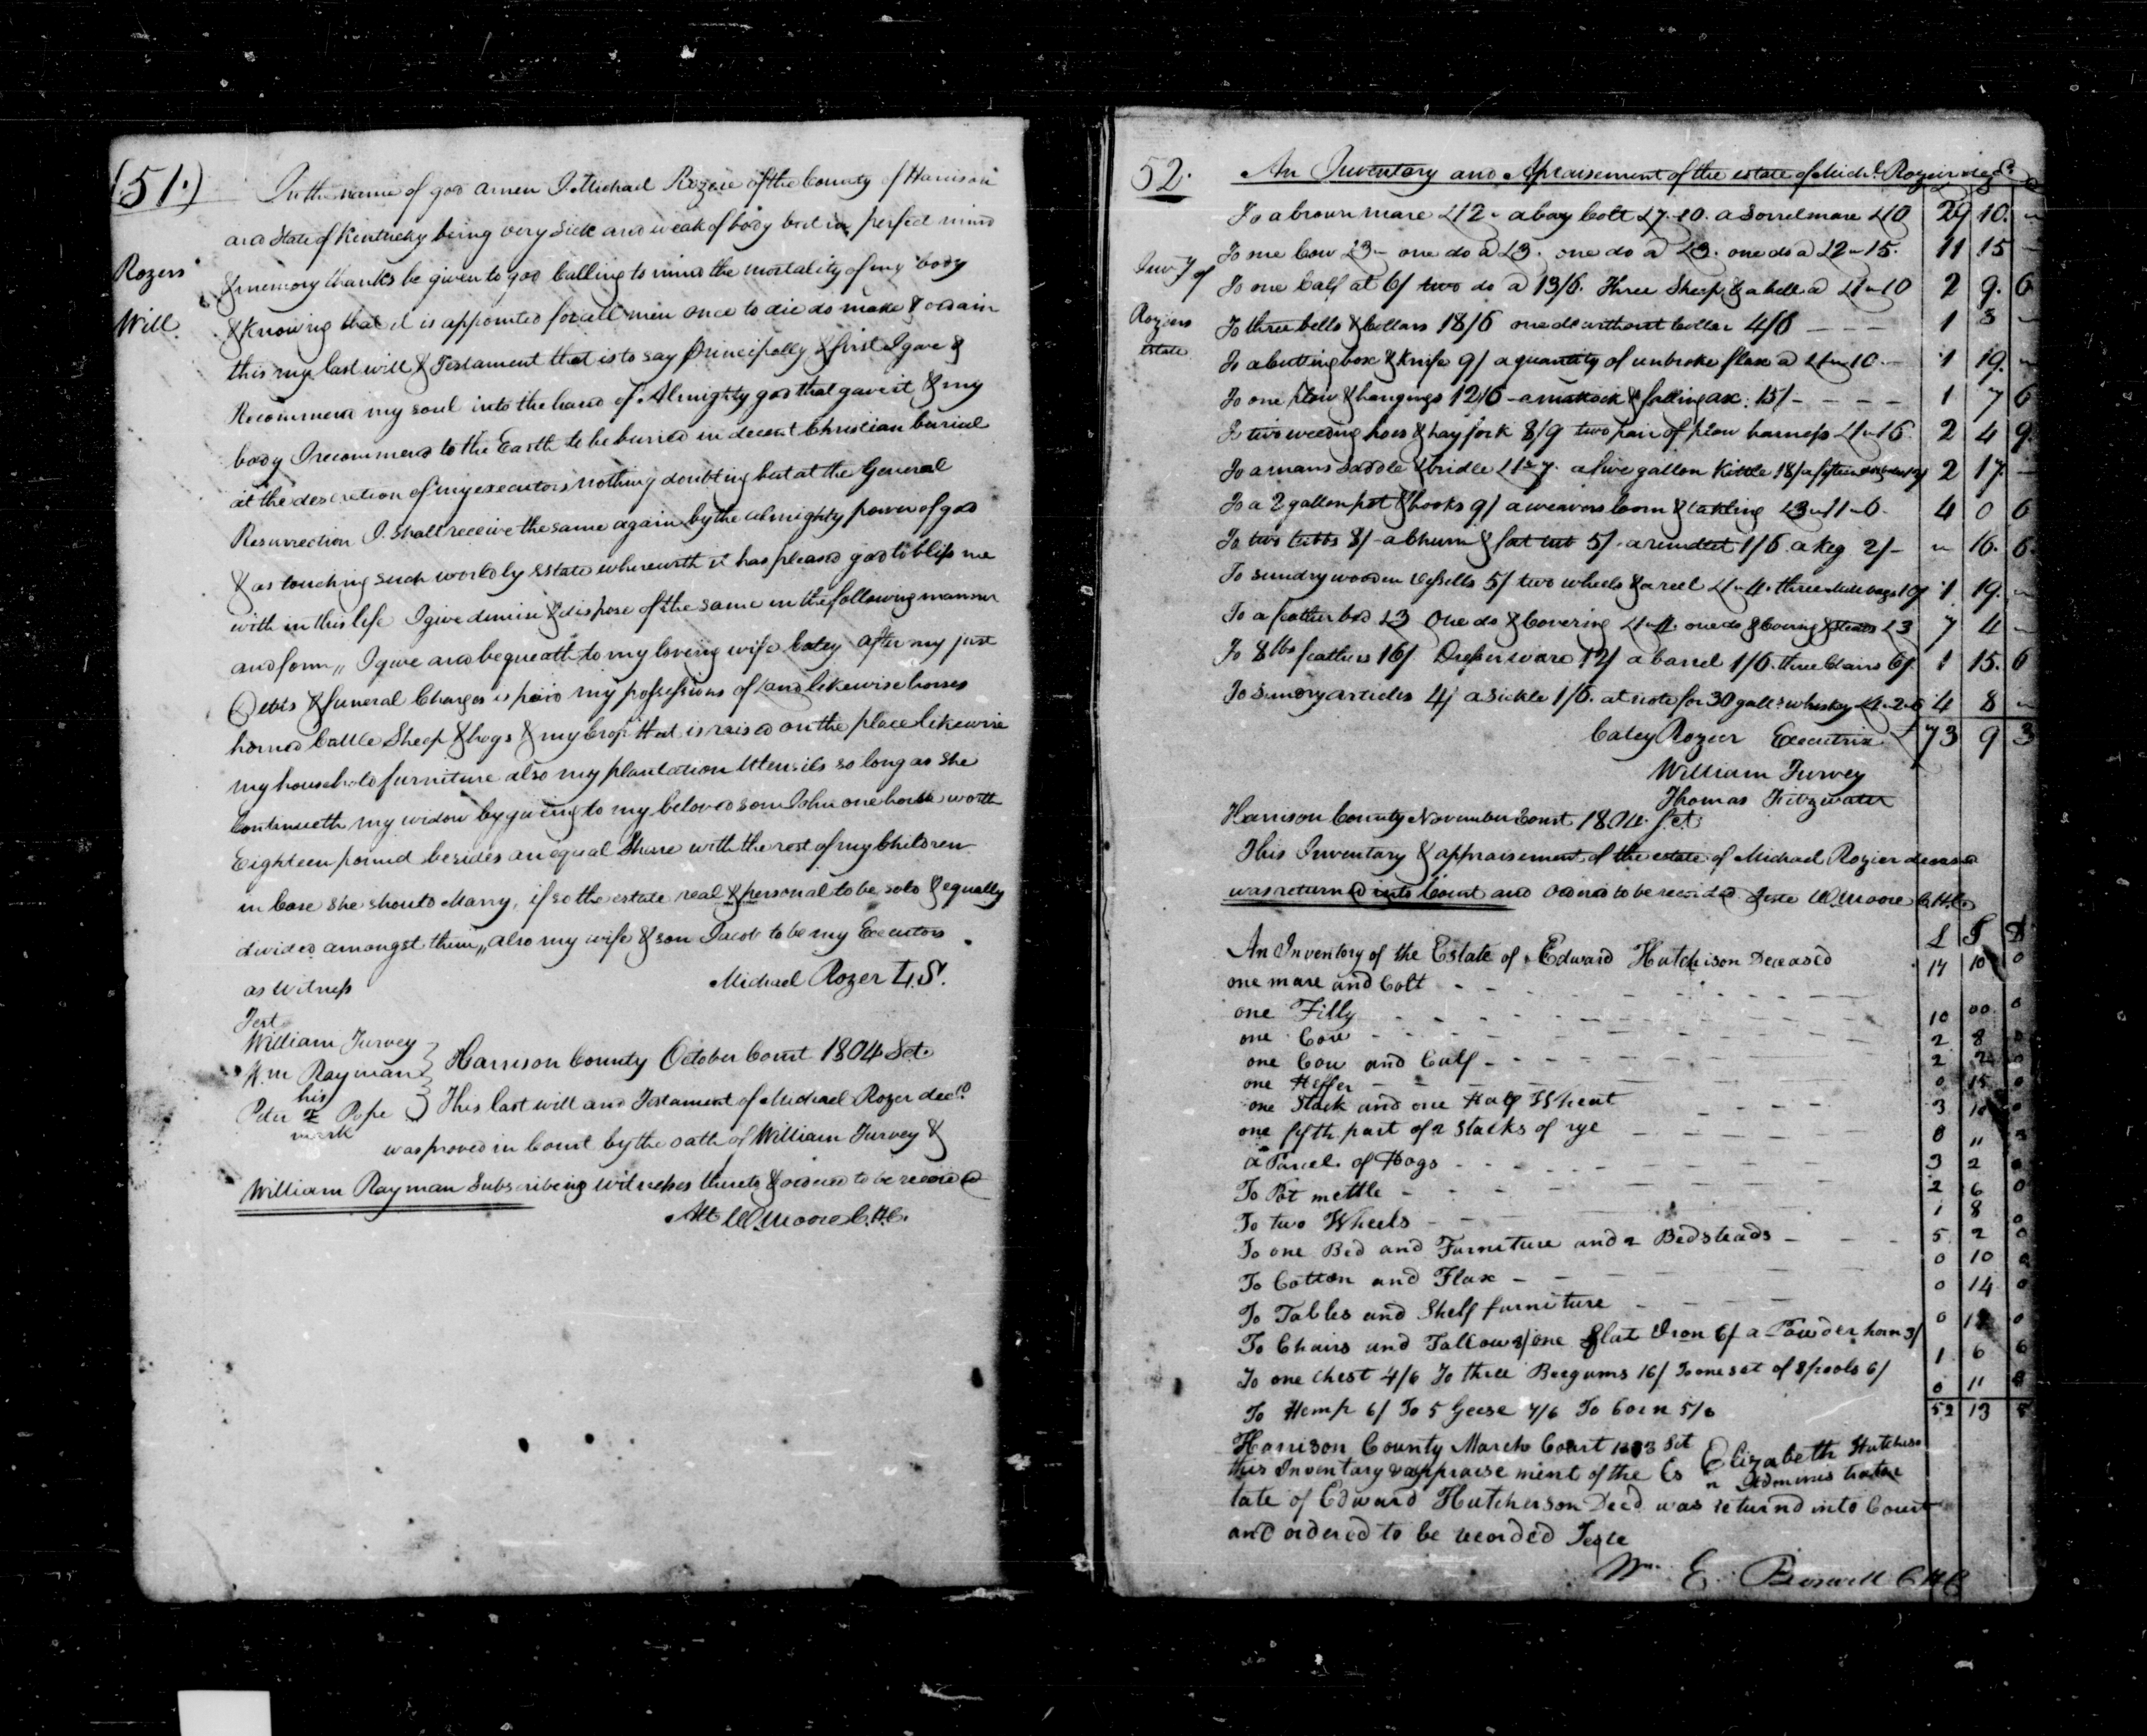 (51.)
Rozers
Will
In the name of god amen I Michael Rozer of the County of Harrison
and State of Kentucky being very sick and weak of body but in perfect mind
& memory thanks be given to god Calling to mind the mortality of my body
& Knowing that it is appointed for all men once to die do make & ordain
this my last will & Testament that is to say principally & first I gave &
Recommend my soul into the hand of Almighty god that gave it & my
body I recommend to the Earth to be buried in decent Christian burial
at the descretion of my executors nothing doubting but at the General
Resurrection I shall receive the same again by the almighty power of god
& as touching such worldly Estate wherewith it has pleased god to bless me
with in this life I give demise & dispose of the same in the following manner
and form,, I give and bequeath to my loving wife Catey after my just
Debts & funeral Charges is paid my possessions of land likewise horses
horned Cattle Sheep & hogs & my Crop that is raised on the place likewise
my household furniture also my plantation Utensils so long as she
Continueth my widow by giving to my beloved son John one horse worth
Eighteen pound besides an equal Share with the rest of my Children
in Case she should Marry, if so the estate real & personal to be sold & equally
divided amongst them,, also my wife & son Jacob to be my Executors
as Witness
Michael Rozer L.S.
Test
William Turvey
Wm Rayman
his
Peter x Pope
mark
Harrison County October Court 1804 Sct.
This last will and Testament of Michael Rozer decd.
was proved in Court by the oath of William Turvey &
William Rayman Subscribeing Witnesses thereto & ordered to be recorded
Att W Moore C.H.C.
52.
Invy of
Roziers
estate
An Inventory and Apraisement of the estate of Michl. Rozier decd.
To a brown mare £12 - a bay Colt £7.10. a Sorrel mare £10 29 10. "
To one Cow £3 - one do a £3. one do a £3. one do a £2 - 15. 11 15 -
To one Calf at 6/ two do a 13/6. Three Sheep & a bell a £1 - 10 2 9. 6
To three bells & Collars 18/6 one do without Collar 4/6 - - - 1 3 "
To a Cutting box & Knife 9/ a quantity of unbroke flax a £1 - 10 - 1 19. "
To one plow & hangings 12/6 - a mattock & falling ax: 15/ - - - - 1 7 6
To two weeding hoes & hay fork 8/9 two pair of plow harness £1 - 16. 2 4 9.
To a mans Saddle & bridle £1 - 7. a five gallon Kittle 18/ 2 17 -
To a 2 gallon pot & hooks 9/ a weavers loom & takling £3 - 11 - 6. 4 0 6
To two tubbs 8/ - a Churn & fat tub 5/ - a rundlet 1/6 a Keg 2/ - " 16. 6.
To sundry wooden vessells 5/ two wheels & a reel £1 - 4. three 10/ 1 19. "
To a feather bed £3 One do & Covering £1 - 4. one do & Covring & steads £3 7 4 "
To 8 lbs feathers 16/. Dresser ware 12/ a barrel 1/6. three Chairs 6/. 1 15. 6
To Sundry articles 4/ a Sickle 1/6. at note for 30 galls. whiskey £4 - 2 - 6 4 8 "
£ 73 9 3
Catey Rozier Executrix
William Turvey
Thomas Fitzwater
Harrison County November Court 1804. Sct.
This Inventory & appraisement of the estate of Michael Rozier deceased
was returned into Court and Ordered to be recorded Teste W Moore C.H.C.
L S D
An Inventory of the Estate of Edward Hutchison Deceased
one mare and Colt - - - 14 10 0
one Filly - - - 10 00 0
one Cow - - - 2 8 0
one Cow and Calf - - - 2 2 0
one Heffer - - - 0 15 0
one Stack and one Half Wheat - - - 3 10 0
one fifth part of 2 Stacks of rye - - - 0 "
a Parcel of Hogs - - - 3 2 0
To Pot mettle - - - 2 6 0
To two Wheels - - - 1 8 0
To one Bed and Furniture and 2 Bedsteads - - - 5 2 0
To Cotton and Flax - - - 0 10 0
To Tables and Shelf furniture - - - 0 14 0
To Chairs and Tallow 3/ one flat Iron 6/ a Powder horn 3/ 0 12 0
To one Chest 4/6 To three Beegums 16/ To one set of Spools 6/ 1 6 6
To Hemp 6/ To 5 Geese 7/6 To Corn 5/6 0 11
52 13
Harrison County March Court Sct
this Inventory & appraisement of the Es
Elizabeth Hutchison
Administratrix
tate of Edward Hutcherson Decd. was returnd into Court
and ordered to be recorded Teste
Wm. E. Boswell C H C